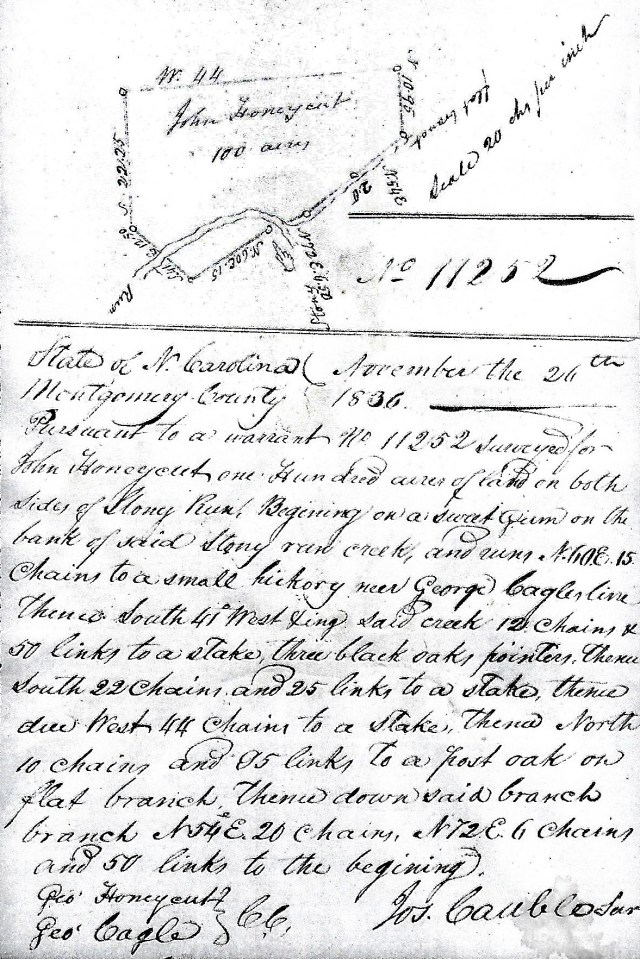 W. 44
John Honeycut
100 acres
S 22.25
N 10.95
flat branch
Scale 20 chs per inch
N 54 E
20
N 72 E. 6.50
Stony
N. 60 E. 15
S 41 W 12.50
Run
No 11252
State of N. Carolina ( November the 26th
Montgomery County 1836.
Pursuant to a warrant No 11252 surveyed for
John Honeycut one Hundred acres of land on both
sides of Stony Run, Begining on a sweet Gum on the
bank of said Stony run creek, and runs N. 60 E. 15
Chains to a small hickory neer George Cagles line
Thence South 41° West Xing said creek 12 Chains &
50 links to a stake, three black oaks pointers, thence
South 22 Chains and 25 links to a stake, thence
due West 44 Chains to a stake, Thence North
10 chains and 95 links to a post oak on
flat branch, Thence down said branch
branch N 54° E. 20 Chains, N 72 E. 6 Chains
and 50 links to the begining.
Geo Honeycut }
Geo Cagle } CC.
Jos. Cauble Sur